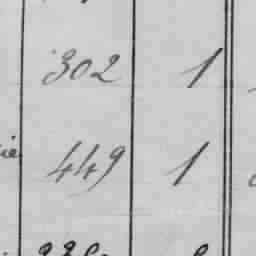 302 1
449 1